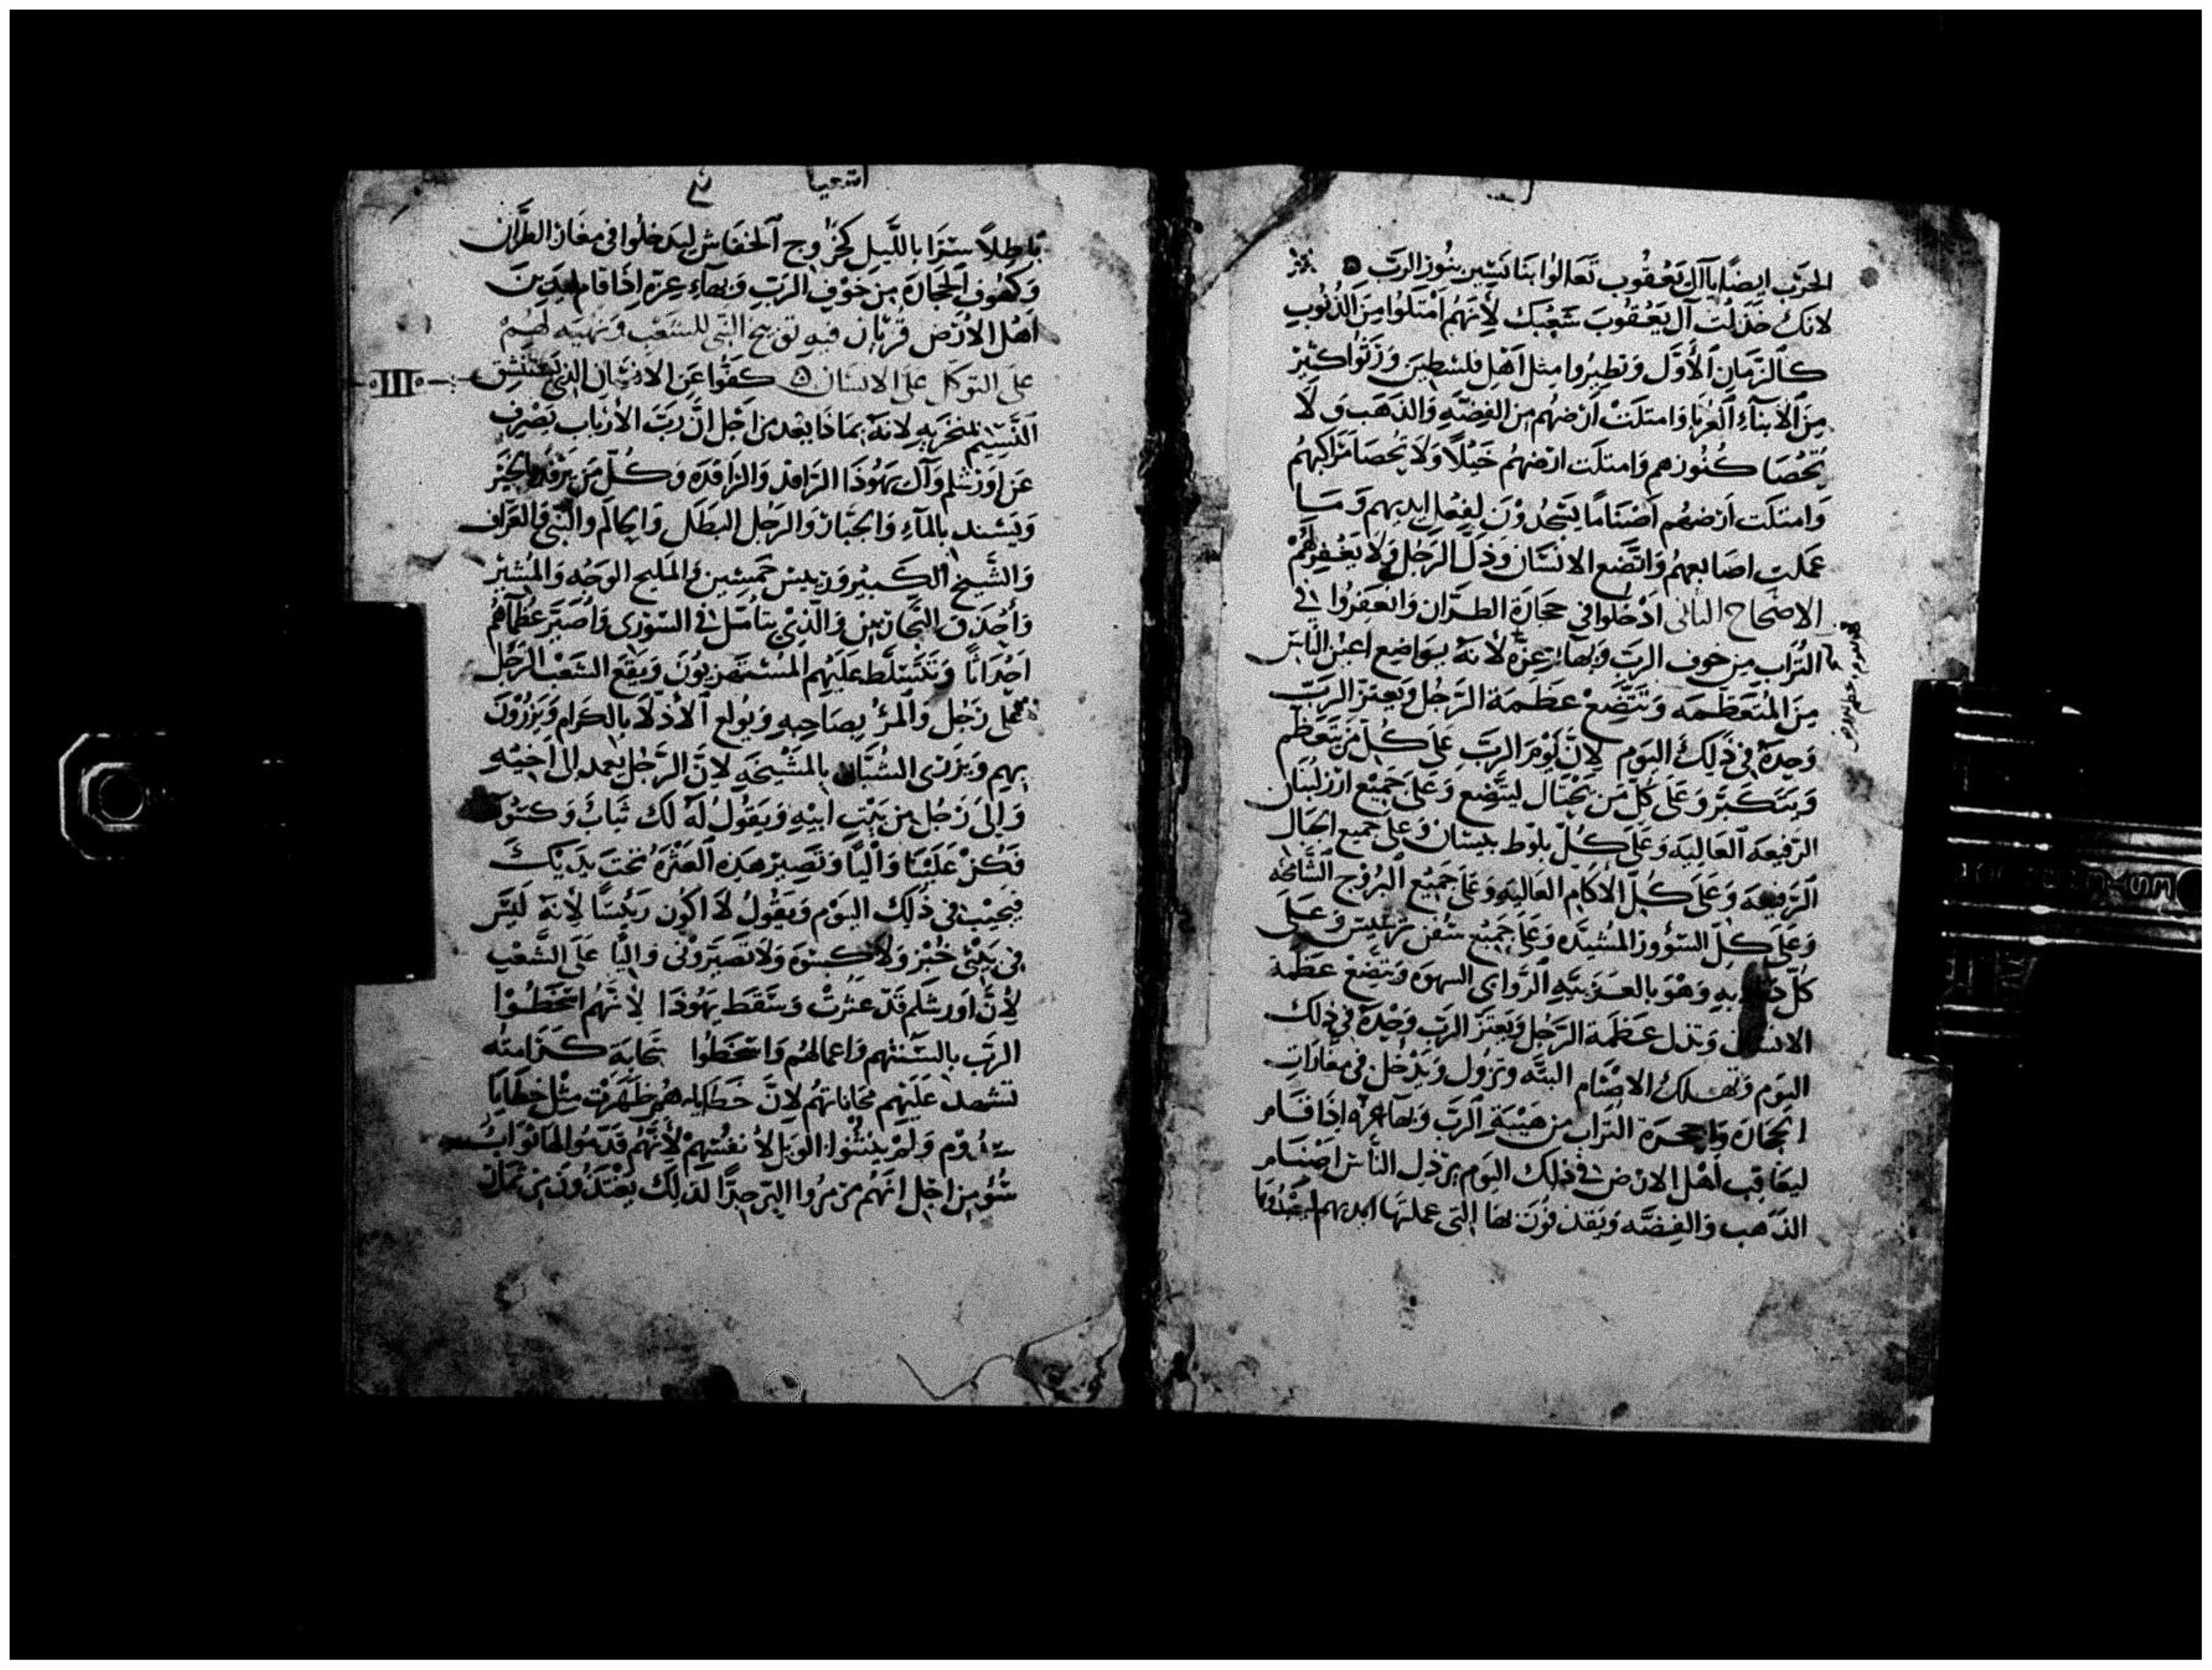 الحرَب ايضًا يا آل يَعْقُوب تَعَالوُا بنَا نَسِير بنُور الربّ
لانكَ خَذَلْت آل يَعْقُوبَ شَعْبَك لأِنهُم امْتَلوُا مِنَ الذُنُوب
كالزَمَانِ الأوَّل وَتطيرُوا مِثل اَهْل فلسْطِينَ وَرَبَّوُا كثيرْ
مِنَ الأبنآء الغُربَا وَامتلَتْ اَرْضهُم مِن الفِضَّه وَالذهَب وَلَا
تُحْصَا كُنُوزهم وَامتلَت ارْضهُم خَيْلًا وَلَا تُحصَا مَرَاكبهُم
وَامتلَت اَرْضهُم اَصْنَامًا يَسْجُدُوْنَ لفِعْل ايديهم وَمَا
عَملت اصَابعهُم وَاتَّضَع الانسَان وَذلَّ الرَجُل وَلَا يَغْفِر لَهُمْ
الاصْحاح الثانى ادْخُلوا في حجَارَة الطرَّان وَانْعَفِرُوا في
التُرَاب مِن خوف الربّ وَبهَآء عِزّه لأنهَ بوَاضِع اعيُن الناس
مِنَ المُتعَظّمَه وَتتَّضِعْ عظَمة الرجُل وَيعتزّ الربّ
وَحِدهُ فِي ذَلِكَ اليَوم لانّ يَوْمَ الربّ عَلى كُلّ مَن تَعَظّم
وَيتكَبّر وَعَلى كُل مَن يَخْتال ليتَّضِع وَعَلى جَميْع ارْز لُبْنَان
الرَفيعَه العَاليَه وَعَلَى كُلّ بلّوط بيسَان وَعلى جَميع الجبَال
الرَفيعَه وَعَلى كُلّ الاكَام العَاليه وَعَلى جَميْع البُرُوج الشَامخَه
وَعَلى كلّ السُوْر المُشيّدَه وَعَلى جَميْع سُفن ترسيس وَعَلى
كُلّ بهِ وَهْوَ بالعَزيبَّهِ الرَواى السهوه وَيتَّضعْ عظَمة
الانسَان وَتذل عظَمة الرَجل وَيعتَز الربّ وَحْدهُ في ذلك
اليَوم وَتهْلك الاصْنَام البتَّه وَتزُول وَيَدْخُل في مغَارَات
الحجَارَه وَاجحِرَة التُرَاب مِن هَيْبَة الربّ وَبهَآء عزّه اِذَا قَام
ليعَاقِب اَهْل الارْض في ذلك اليَوم يرْذِل الناس اصْنَام
الذهَب وَالفِضّه وَيَقذفُون بهَا التى عملتهَا ايديهم ليَعْبُدُوهَا
اشعيا
بَاطِلاً سِترًا بالليل كخُرُوج الخفَاش ليَدخلوُا في مغَار الطرَّان
وَكهُوف الحجَارَه مِن خَوْف الربّ وَبهَآء عِزّه اِذَا قام ليدين
اَهْل الارْض قُربَان فيهِ توبيخ النبي للشعْب وَنهْيه لهُمْ
عَلى التوكّل عَلى الانسَان كفّوا عَن الانسَان الذي يَسْتنْشِق
النَّسِيْم بمنخَرهِ لانهُ بمَاذَا يُعْد مِن اَجْل انّ رَبّ الأرْبَاب يَصْرِف
عن اوَرشلم وَآل يَهُوْدَا الرَافد وَالرَافدَه وَكُلّ مَن يَرْفد بالخبز
وَيَسْند بالمآءِ وَالجبَّار وَالرجُل البَطل وَالحاكم وَالنَّبي وَالعَرَّاف
وَالشَّيخ الكَبيْر وَرَئيسْ خَمسِين وَالمَليح الوَجْه وَالمُشيرْ
وَأحْذق النجَّارين وَالذي يتأمّل في السّورَى وَاُصَيّر عظمآهُم
احدَاثًا وَتَتسَلط عَليهم المُسْتَهزيُونَ وَيَقع الشعْب الرَجُل
عَلى رَجُل وَالمرْ بصَاحبهِ وَيولع الأذلّا بالكرَام وَيَزْرُوْنَ
بهم وَيزرى الشبَّان بالمَشيخَهِ لانّ الرَجُل يعمد الى اَخيْهِ
وَاِلى رَجُل مِن بَيْتِ اَبيهِ وَيَقُولُ لَهُ لكَ ثيَابٌ وَكسْوه
فكُن عَليْنَا وَاليًا وَتصِير هَذِه العَثْرَه تحْتَ يَديْكَ
فيُجِيْب في ذَلكَ اليَوْم وَيَقُول لَا اَكُون رَئيْسًا لانهُ ليْسَ
في بَيْتي خُبْز وَلَا كِسْوَه وَلَا تصَيّرُوني وَاليًا عَلَى الشَعْب
لأنَّ اورشلم قَدْ عثرَتْ وَسَقَط يَهُوْدَا لأنَّهُم اسْخطُوا
الربّ بالسنتهم وَاعمَالهُم وَاسْخَطُوا سحَابَة كرَامتهُ
تشهد عَليْهِم محَاباتهُم لانّ خطَايَاهم ظهَرَت مِثْل خطَايَا
سدُوْم وَلَمْ يَنْثنوا الوَيل لأنفُسهمْ لأنَّهُم قدَّمُوا لهَا نَوَايبْ
سُوْ مِن اجْل انّهُم مرمرُوا البِرّ جدًّا لذلك يعْتَدُّوْنَ مِن عَمَل